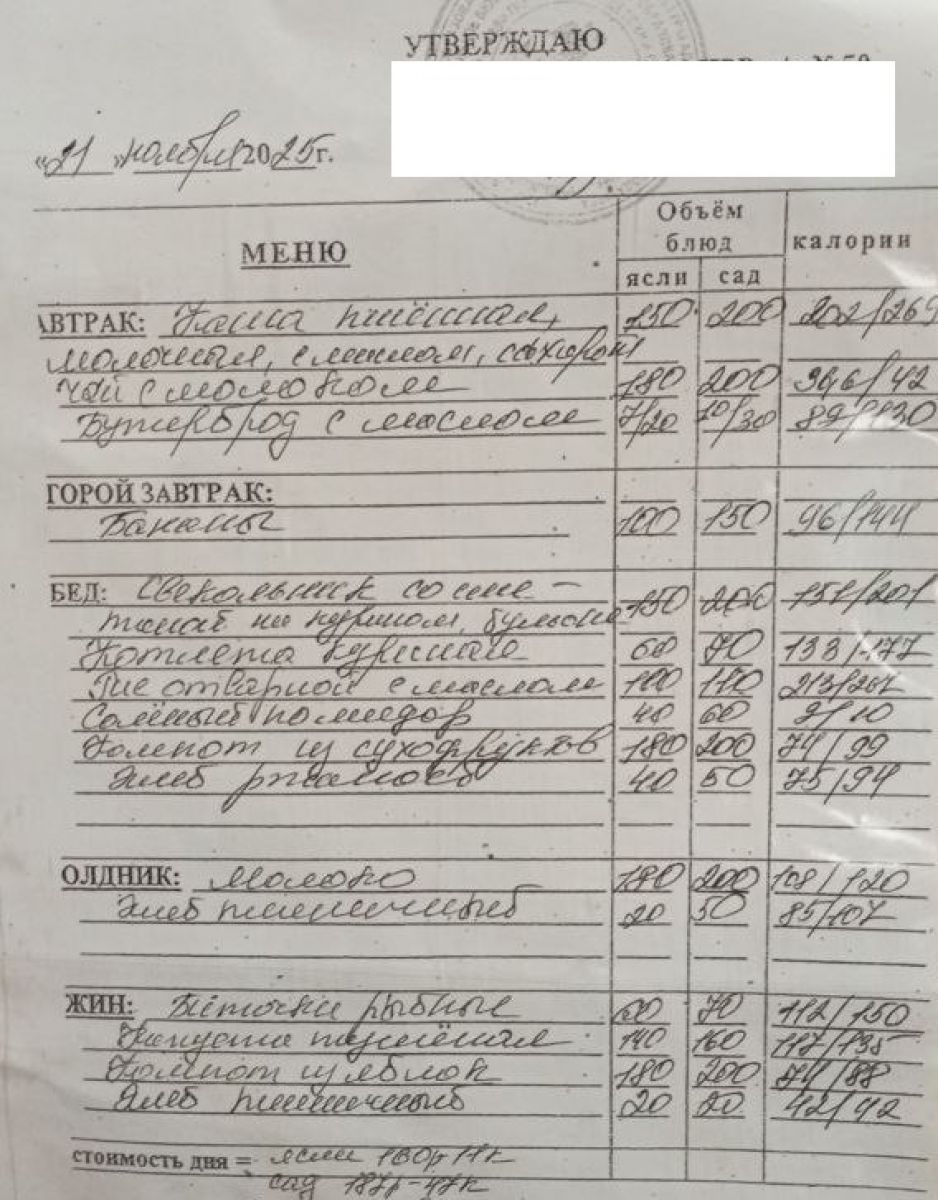 УТВЕРЖДАЮ
«21» ноября 2025г.
МЕНЮ Объём блюд калории
ясли сад
АВТРАК: Каша пшённая, 150 200 202/269
молочная, с маслом, сахаром
Чай с молоком 180 200 36,6/42
Бутерброд с маслом 7/20 10/30 /130
ТОРОЙ ЗАВТРАК:
Бананы 100 150 96/144
БЕД: Свекольник со сме- 150 200 151/201
таной на курином бульоне
Котлета куриная 60 70 133/177
Рис отварной с маслом 100 110 213/
Солёный помидор 40 60 /10
Компот из сухофруктов 180 200 74/99
Хлеб ржаной 40 50 75/94
ОЛДНИК: Молоко 180 200 108/120
Хлеб пшеничный 20 50 85/107
ЖИН: Биточки рыбные 60 70 112/150
Капуста тушёная 140 160 117/135
Компот из яблок 180 200 74/88
Хлеб пшеничный 20 20 42/42
стоимость дня = ясли 160р 11к
сад 187р-47к